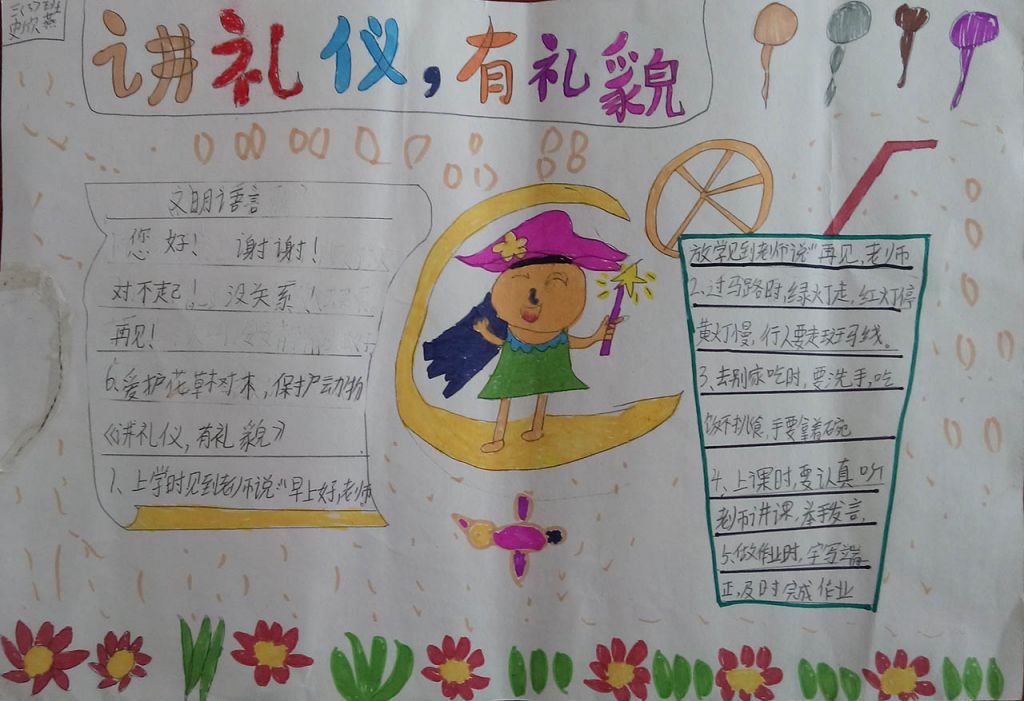 三(3)班
史欣燕
讲礼仪,有礼貌
文明语言
您好! 谢谢!
对不起! 没关系!
再见!
6、爱护花草树木,保护动物
《讲礼仪,有礼貌》
1、上学时见到老师说“早上好,老师
放学见到老师说“再见,老师
2、过马路时,绿灯走,红灯停
黄灯慢,行人要走斑马线。
3、去别家吃时,要洗手,吃
饭不挑食,手要拿着碗
4、上课时,要认真听
老师讲课,举手发言,
5、做作业时,字写端
正,及时完成作业